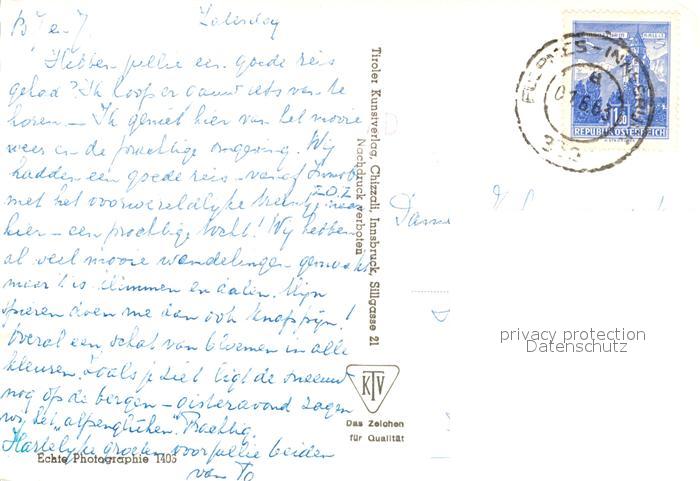 Zaterdag
B. en J.
Hebben jullie een goede reis
gehad? Ik hoop er gauw iets van te
horen – Ik geniet hier van het mooie
weer en de prachtige omgeving. Wij
hadden een goede reis – vanaf Innsbr.
met het voorwereldlijke treintje naar
hier – een prachtige tocht! Wij hebben
al veel mooie wandelingen gemaakt
maar 't is klimmen en dalen. Mijn
spieren doen me dan ook knap pijn!
Overal een schat van bloemen in alle
kleuren. Zoals je ziet ligt de sneeuw
nog op de bergen – gisteravond zagen
wij het "alpenglühen". Prachtig
Hartelijke groeten voor jullie beiden
van To
Echte Photographie 1405
Tiroler Kunstverlag, Chizzali, Innsbruck, Sillgasse 21
Nachdruck verboten
KTV
Das Zeichen
für Qualität
REPUBLIK ÖSTERREICH
1.50
privacy protection
Datenschutz